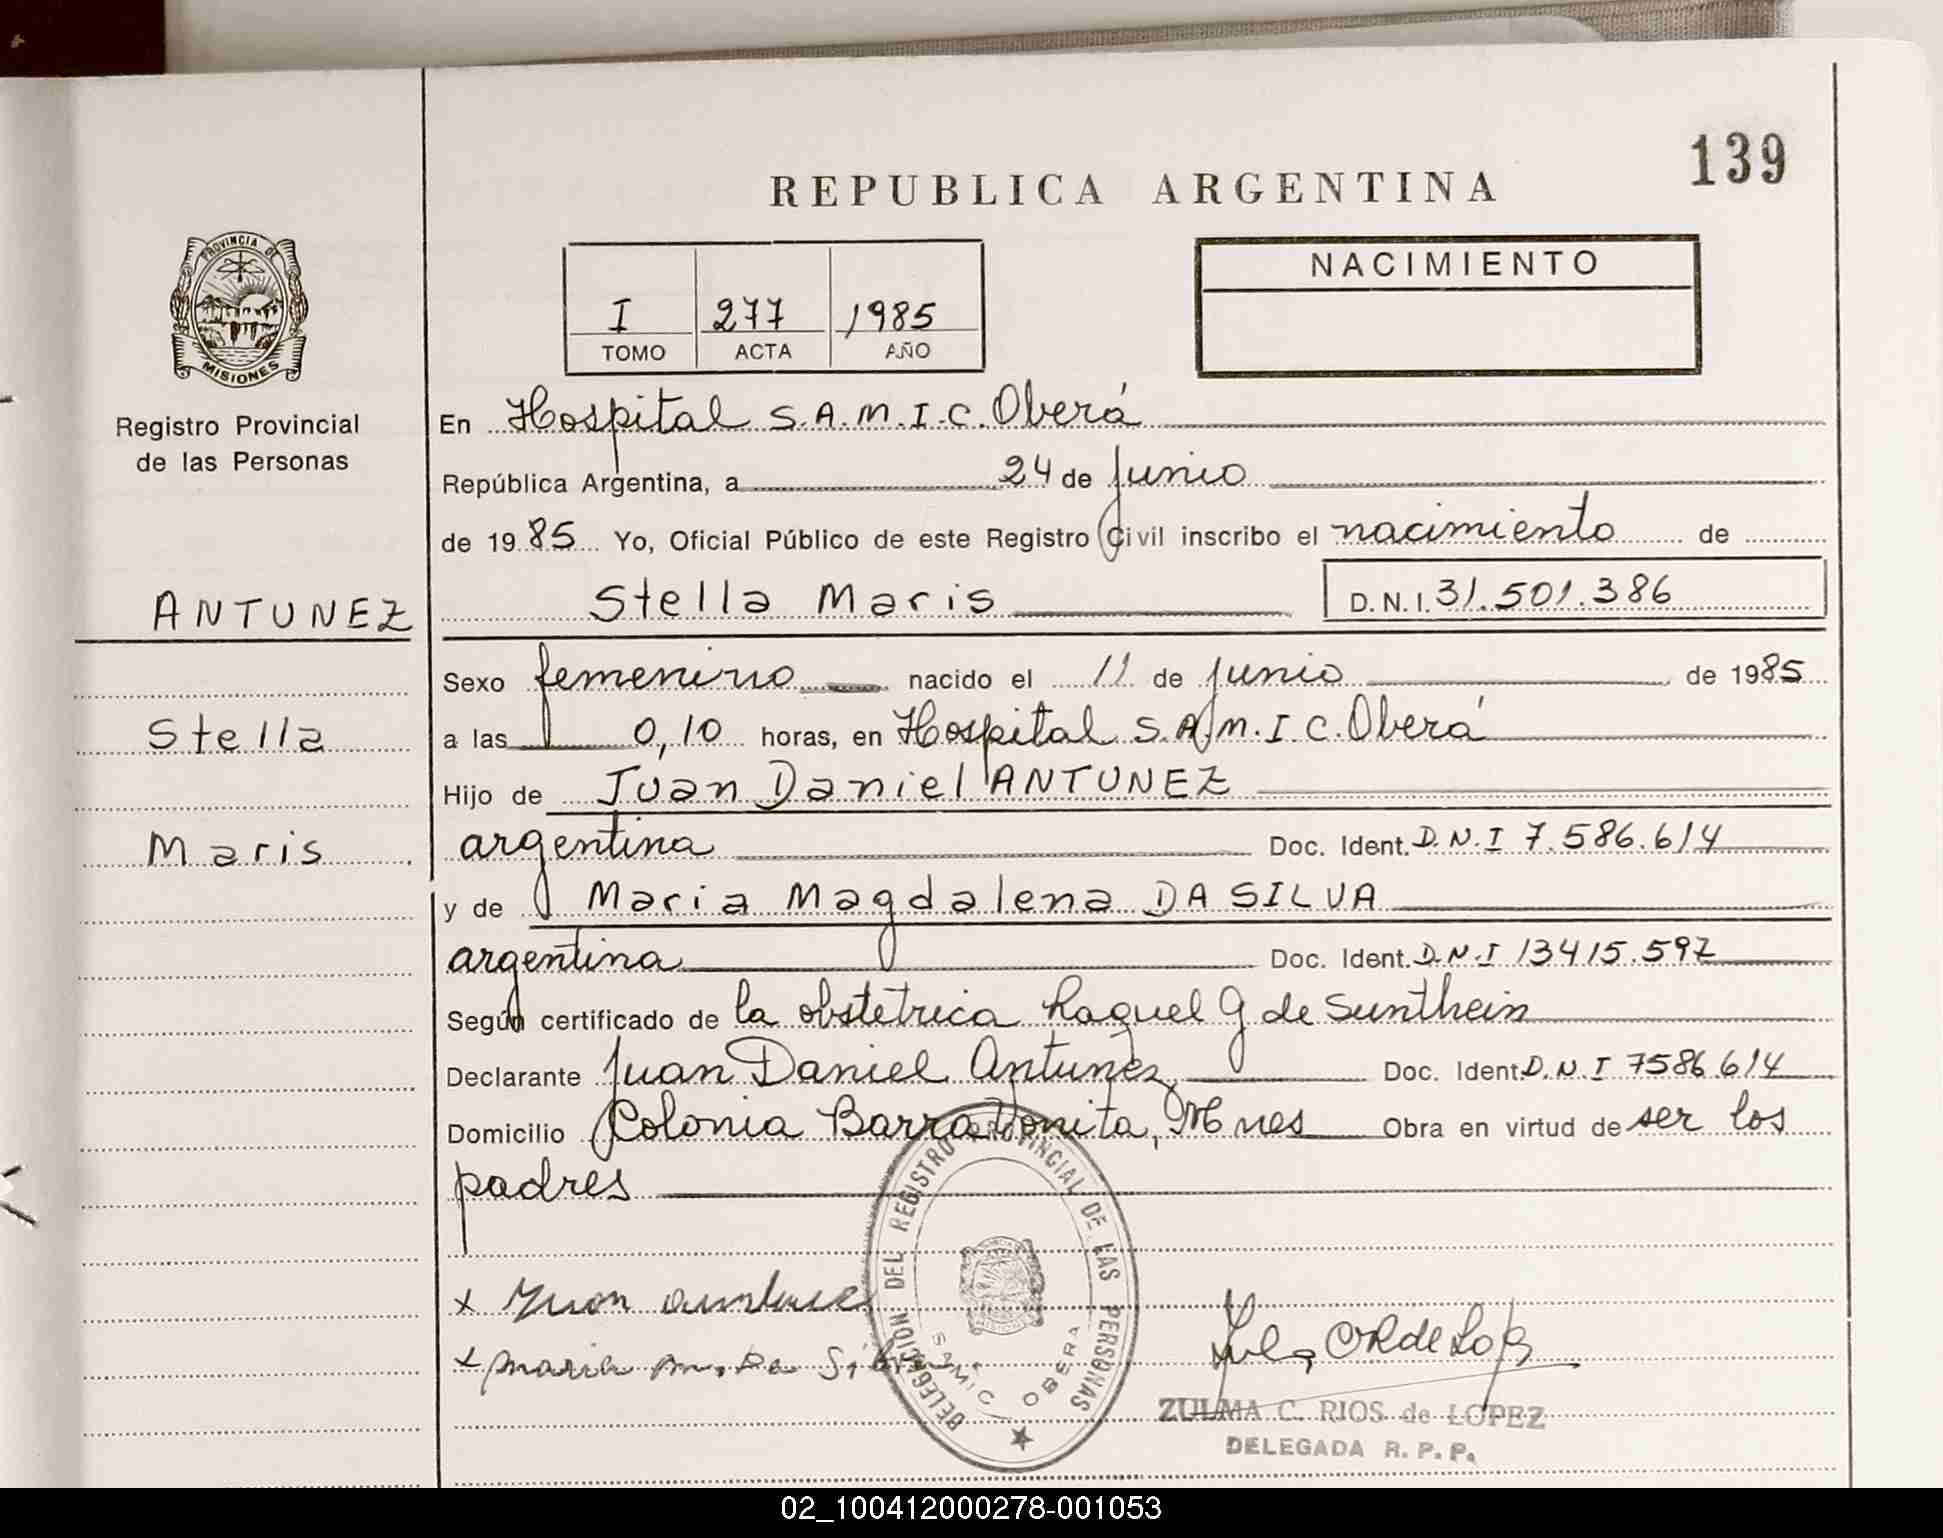 139
REPUBLICA ARGENTINA
PROVINCIA DE
MISIONES
Registro Provincial
de las Personas
I 277 1985
TOMO ACTA AÑO
NACIMIENTO
En Hospital S.A.M.I.C. Oberá
República Argentina, a 24 de Junio
de 1985 Yo, Oficial Público de este Registro Civil inscribo el nacimiento de
ANTUNEZ
Stella Maris D.N.I. 31.501.386
Sexo femenino nacido el 11 de Junio de 1985
Stella
a las 0,10 horas, en Hospital S.A.M.I.C. Oberá
Hijo de Juan Daniel ANTUNEZ
Maris
argentina Doc. Ident. D.N.I 7.586.614
y de Maria Magdalena DA SILVA
argentina Doc. Ident. D.N.I 13415.597
Según certificado de la obstetrica Raquel G de Sunthein
Declarante Juan Daniel Antunez Doc. Ident. D.N.I 7586.614
Domicilio Colonia Barra Bonita, Mnes Obra en virtud de ser los
padres
DELEGACION DEL REGISTRO PROVINCIAL DE LAS PERSONAS
SAMIC OBERA
x Juan
x Maria M. Da Silva
ZULMA C. RIOS de LOPEZ
DELEGADA R. P. P.
02_100412000278-001053